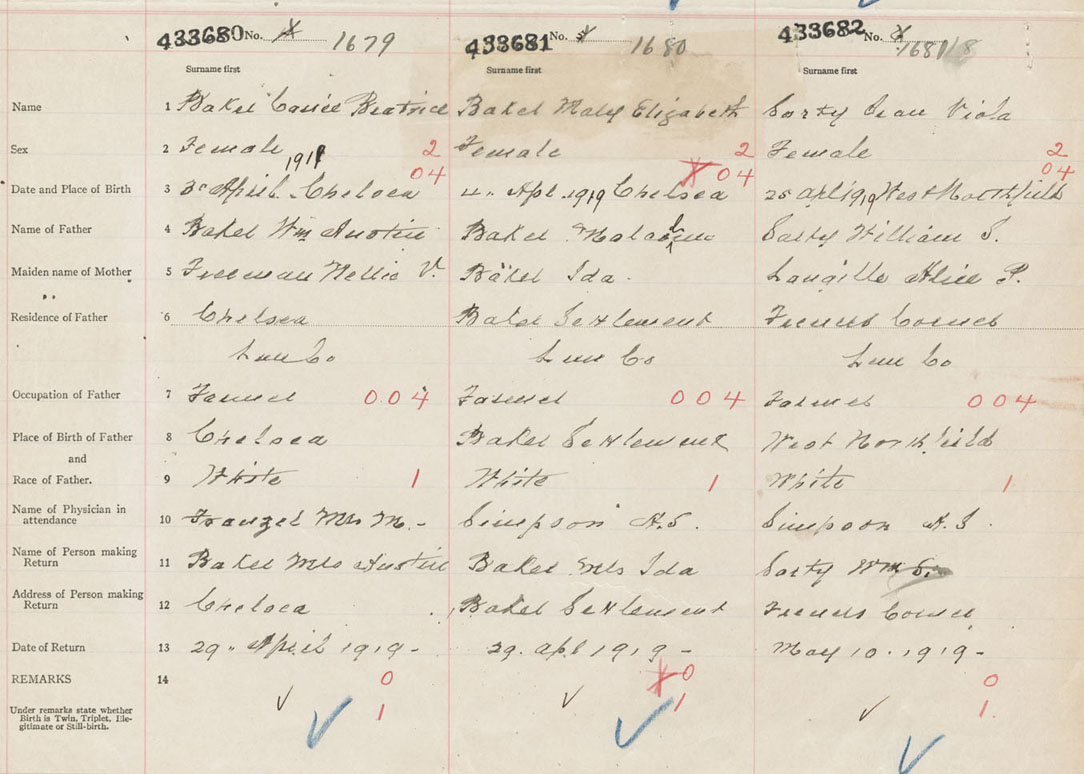 433680 No. 1679 433681 No. 1680 433682 No. 1681
Surname first Surname first Surname first
Name 1 Baker Carrie Beatrice Baker Mary Elizabeth Sarty Jean Viola
Sex 2 Female 2 Female 2 Female 2
1919 04 04 04
Date and Place of Birth 3 3" April Chelsea 4" Apl. 1919 Chelsea 25 Apl 1919 West Northfield
Name of Father 4 Baker Wm Austin Baker Malcolm Sarty William S.
Maiden name of Mother 5 Freeman Nellie V. Baker Ida. Langille Alice P.
Residence of Father 6 Chelsea Baker Settlement Freners Corner
Lun Co Lun Co Lun Co
Occupation of Father 7 Farmer 004 Farmer 004 Farmer 004
Place of Birth of Father 8 Chelsea Baker Settlement West Northfield
and
Race of Father. 9 White 1 White 1 White 1
Name of Physician in
attendance 10 Mrs M. - Simpson A. S. Simpson A. S.
Name of Person making
Return 11 Baker Mrs Austin Baker Mrs Ida Sarty Wm S.
Address of Person making
Return 12 Chelsea Baker Settlement Freners Corner
Date of Return 13 29" April 1919 - 29. Apl 1919 - May 10. 1919 -
REMARKS 14 0 0 0
Under remarks state whether
Birth is Twin, Triplet, Ille-
gitimate or Still-birth. 1 1 1